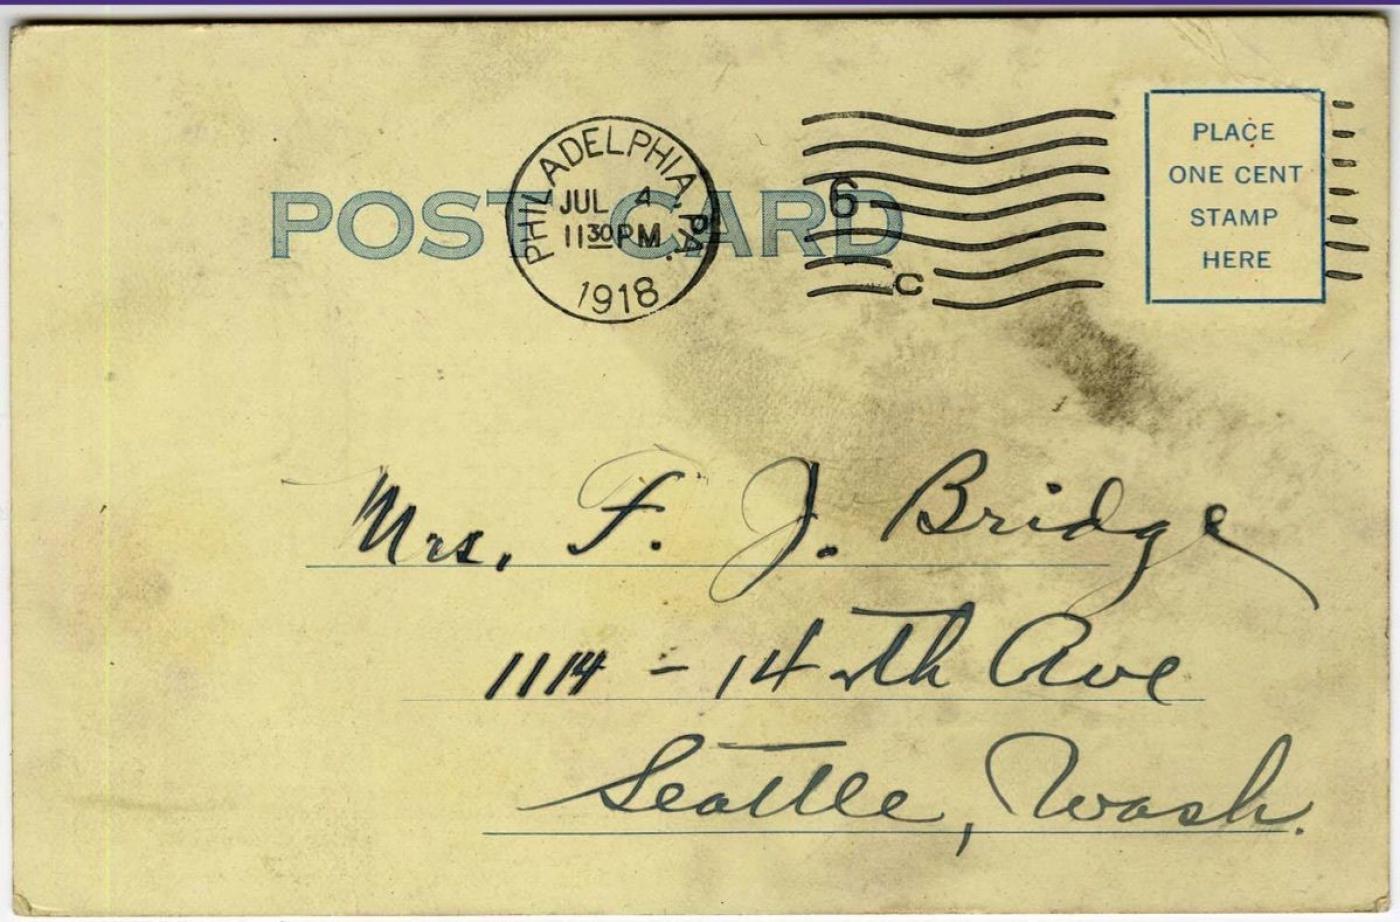 POST CARD
PHILADELPHIA, PA.
JUL 4
11 30 PM
1918
6
C
PLACE
ONE CENT
STAMP
HERE
Mrs. F. J. Bridge
1114 - 14th Ave
Seattle, Wash.